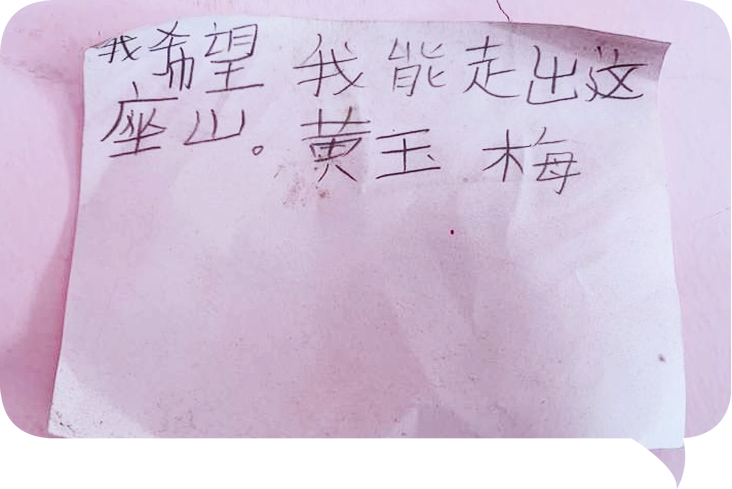 我希望我能走出这
座山。黄玉梅